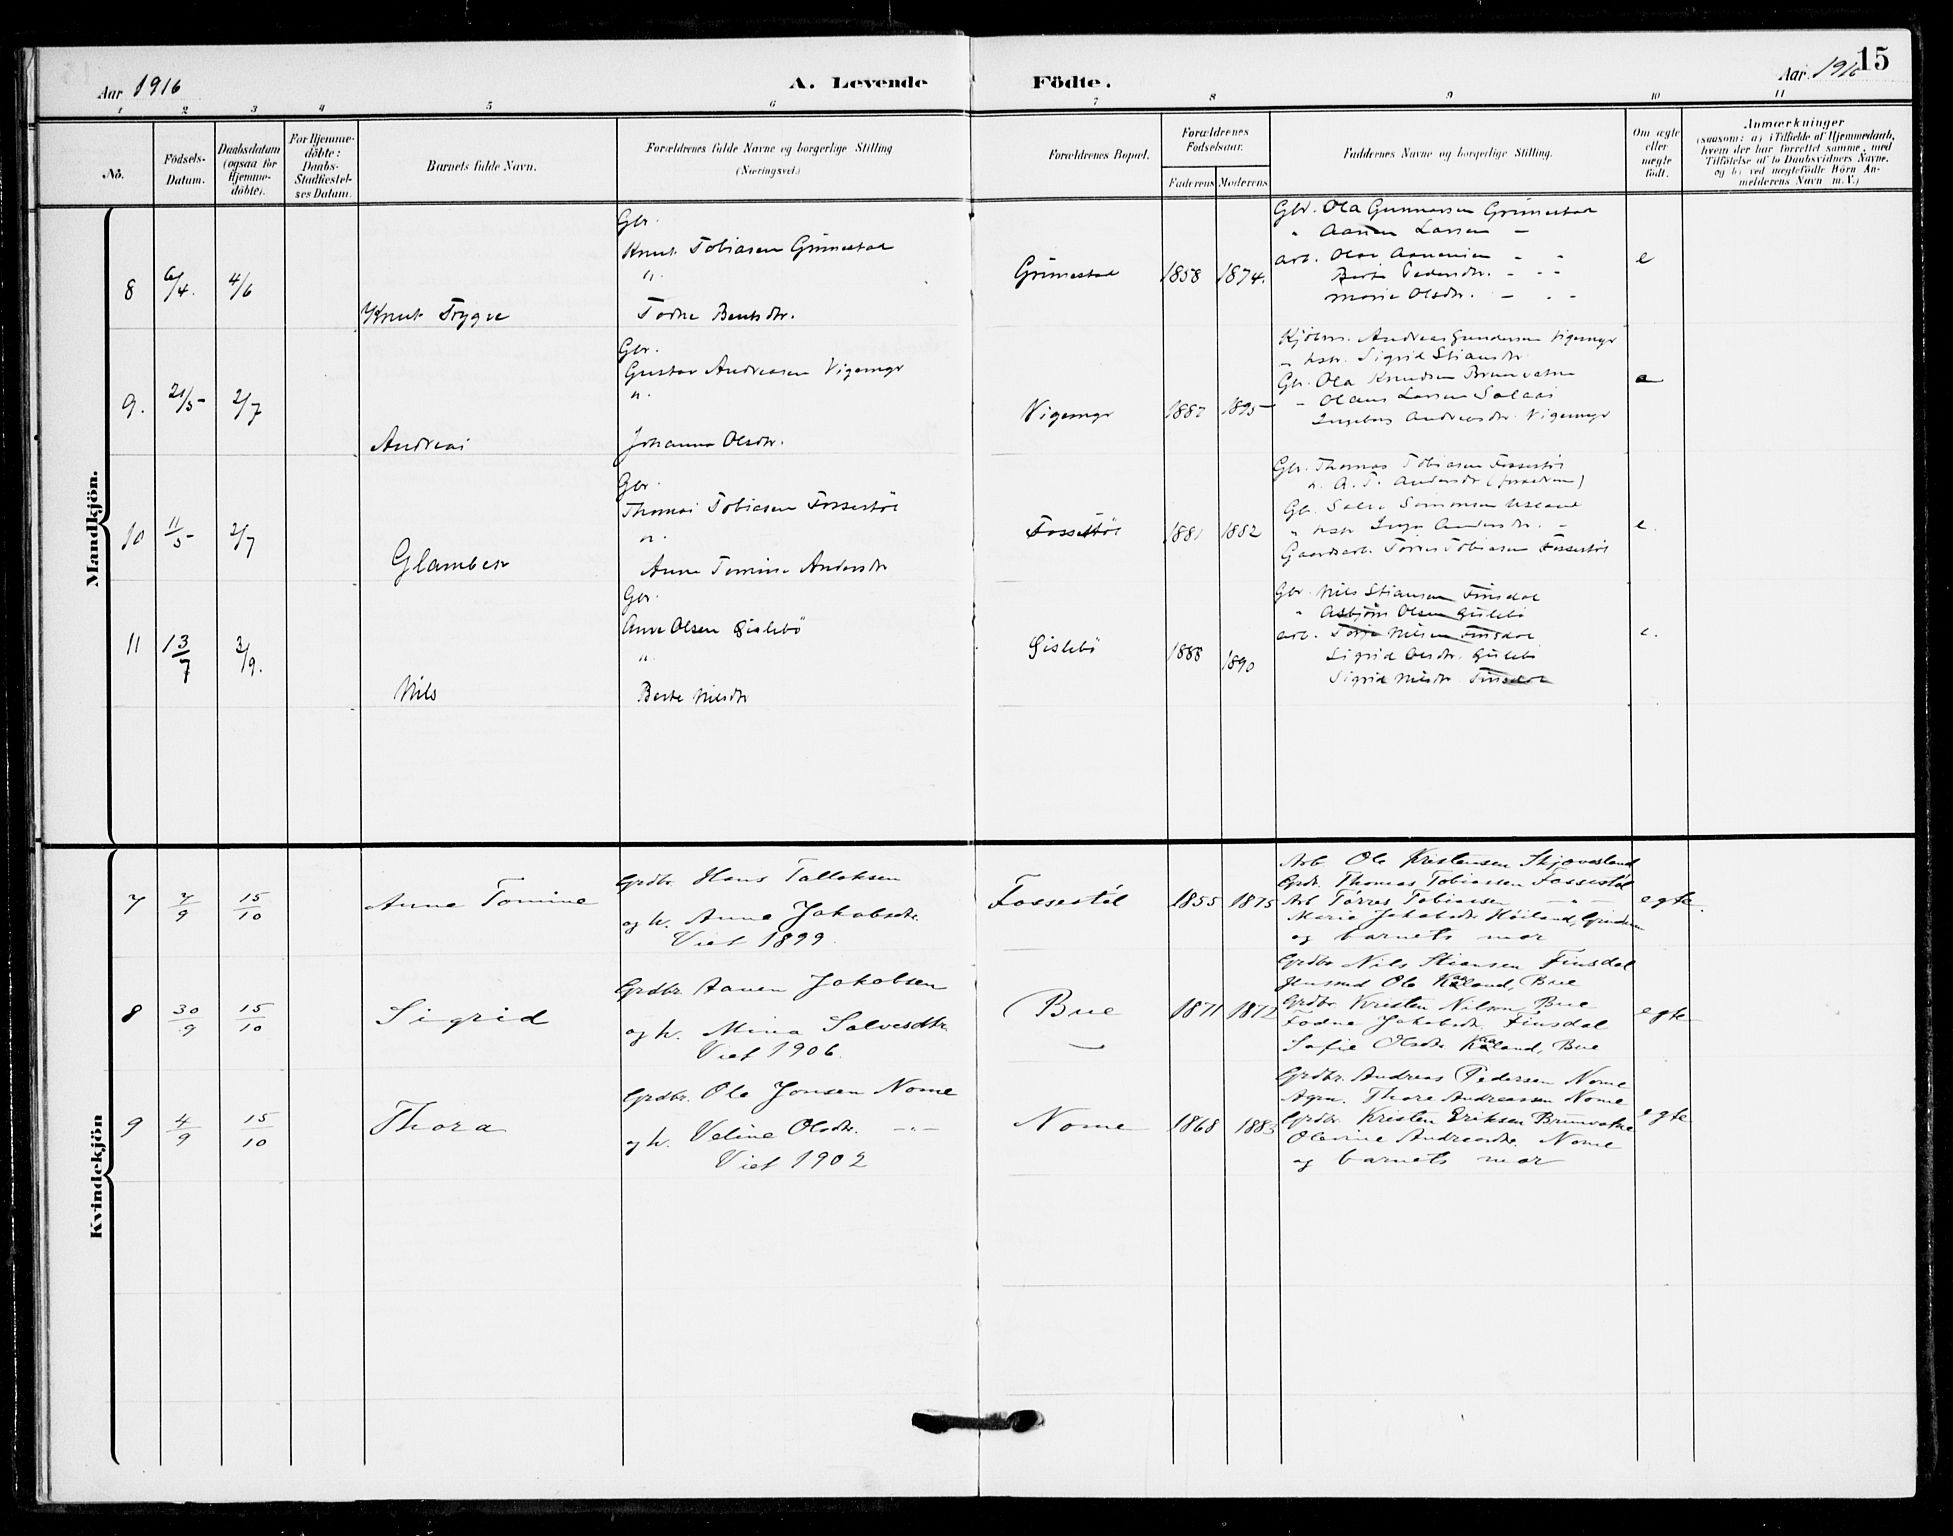 15
Aar 1916
A. Levende Födte.
Aar 1916
1 2 3 4 5 6 7 8 9 10 11
No.
Födsels-Datum.
Daabsdatum (ogsaa for Hjemme-döbte).
For Hjemme-döbte: Daabs-Stadfæstel-ses Datum.
Barnets fulde Navn.
Forældrenes fulde Navne og borgerlige Stilling (Næringsvei.)
Forældrenes Bopæl.
Forældrenes Födselsaar.
Faderens Moderens
Faddernes Navne og borgerlige Stilling.
Om ægte eller uægte födt.
Anmærkninger
(saasom: a) i Tilfælde af Hjemmedaab, hvem der har forrettet samme, med Tilföielse af to Daabsvidners Navne, og b) ved uægtefödte Börn An-melderens Navn m. V.)
Mandkjön.
8 6/4. 4/6 Knut Trygve
Gbr.
Knut Tobiasen Grimestad
"
Todne Bentsdtr.
Grimestad 1858 1874.
Gbr. Ola Gunnarsen Grimestad
" Aanen Larsen "
arb. Olai Aanensen " "
Berte Pedersdtr. " "
Marie Olsdtr. " "
e
9. 21/5 2/7 Andreas
Gbr.
Gustav Andreasen Vigemyr
"
Johanna Olsdtr.
Vigemyr 1887 1895
Kjöbm. Andreas Gundersen Vigemyr
" hstr. Sigrid Stiansdtr.
Gbr. Ola Knudsen Brunvatne
" Olaus Larsen
Ingeborg Andreasdtr. Vigemyr
e
10 11/5 2/7 Glambek
Gbr.
Thomas Tobiasen Fossestöl
"
Anne Tomine Andersdtr
Fossestöl 1881 1882
Gbr. Thomas Tobiasen Fossestöl
" A. T. Andersdtr (forældrene)
Gb. Salve Simonsen
" hstr Inga Andersdtr. "
Gaardsarb. Törres Tobiasen Fossestöl
e.
11 13/7 3/9. Nils
Gbr.
Anve Olsen Gislebö
"
Berte Nilsdtr
Gislebö 1888 1890
Gbr. Nils Stiansen Finsdal
" Asbjörn Olsen Gislebö
arb. Terje Nilsen Finsdal
Sigrid Olsdtr. Gislebö
Sigrid Nilsdtr. Finsdal
e.
Kvindekjön
7 7/9 15/10 Anne Tomine
Grdbr. Hans Tallaksen
og h. Anne Jakobsdtr.
Viet 1899.
Fossestöl 1855 1875
Arb. Ole Kristensen Skjævesland
Grdbr. Thomas Tobiassen Fossestöl
Arb Törres Tobiassen — " —
Marie Jakobsdtr. Höiland, Grindum
og barnets mor
egte.
8 30/9 15/10 Sigrid
Grdbr. Aanen Jakobsen
og h. Mina Salvesdtr.
Viet 1906.
Bue 1871 1872
Grdbr Nils Stiansen Finsdal
Ole Kaaland, Bue
Grdbr. Kristen Nilsen Bue
Todne Jakobsdtr. Finsdal
Sofie Olsdtr. Kaaland, Bue
egte
9 4/9 15/10 Thora
Grdbr. Ole Jonsen Nome
og h. Veline Olsdtr. — " —
Viet 1902
Nome 1868 1883
Grdbr. Andreas Pedersen Nome
Agra. Thore Andreassen Nome
Grdbr. Kristen Eriksen Brunvatne
Olavine Andreasdtr. Nome
og barnets mor
egte